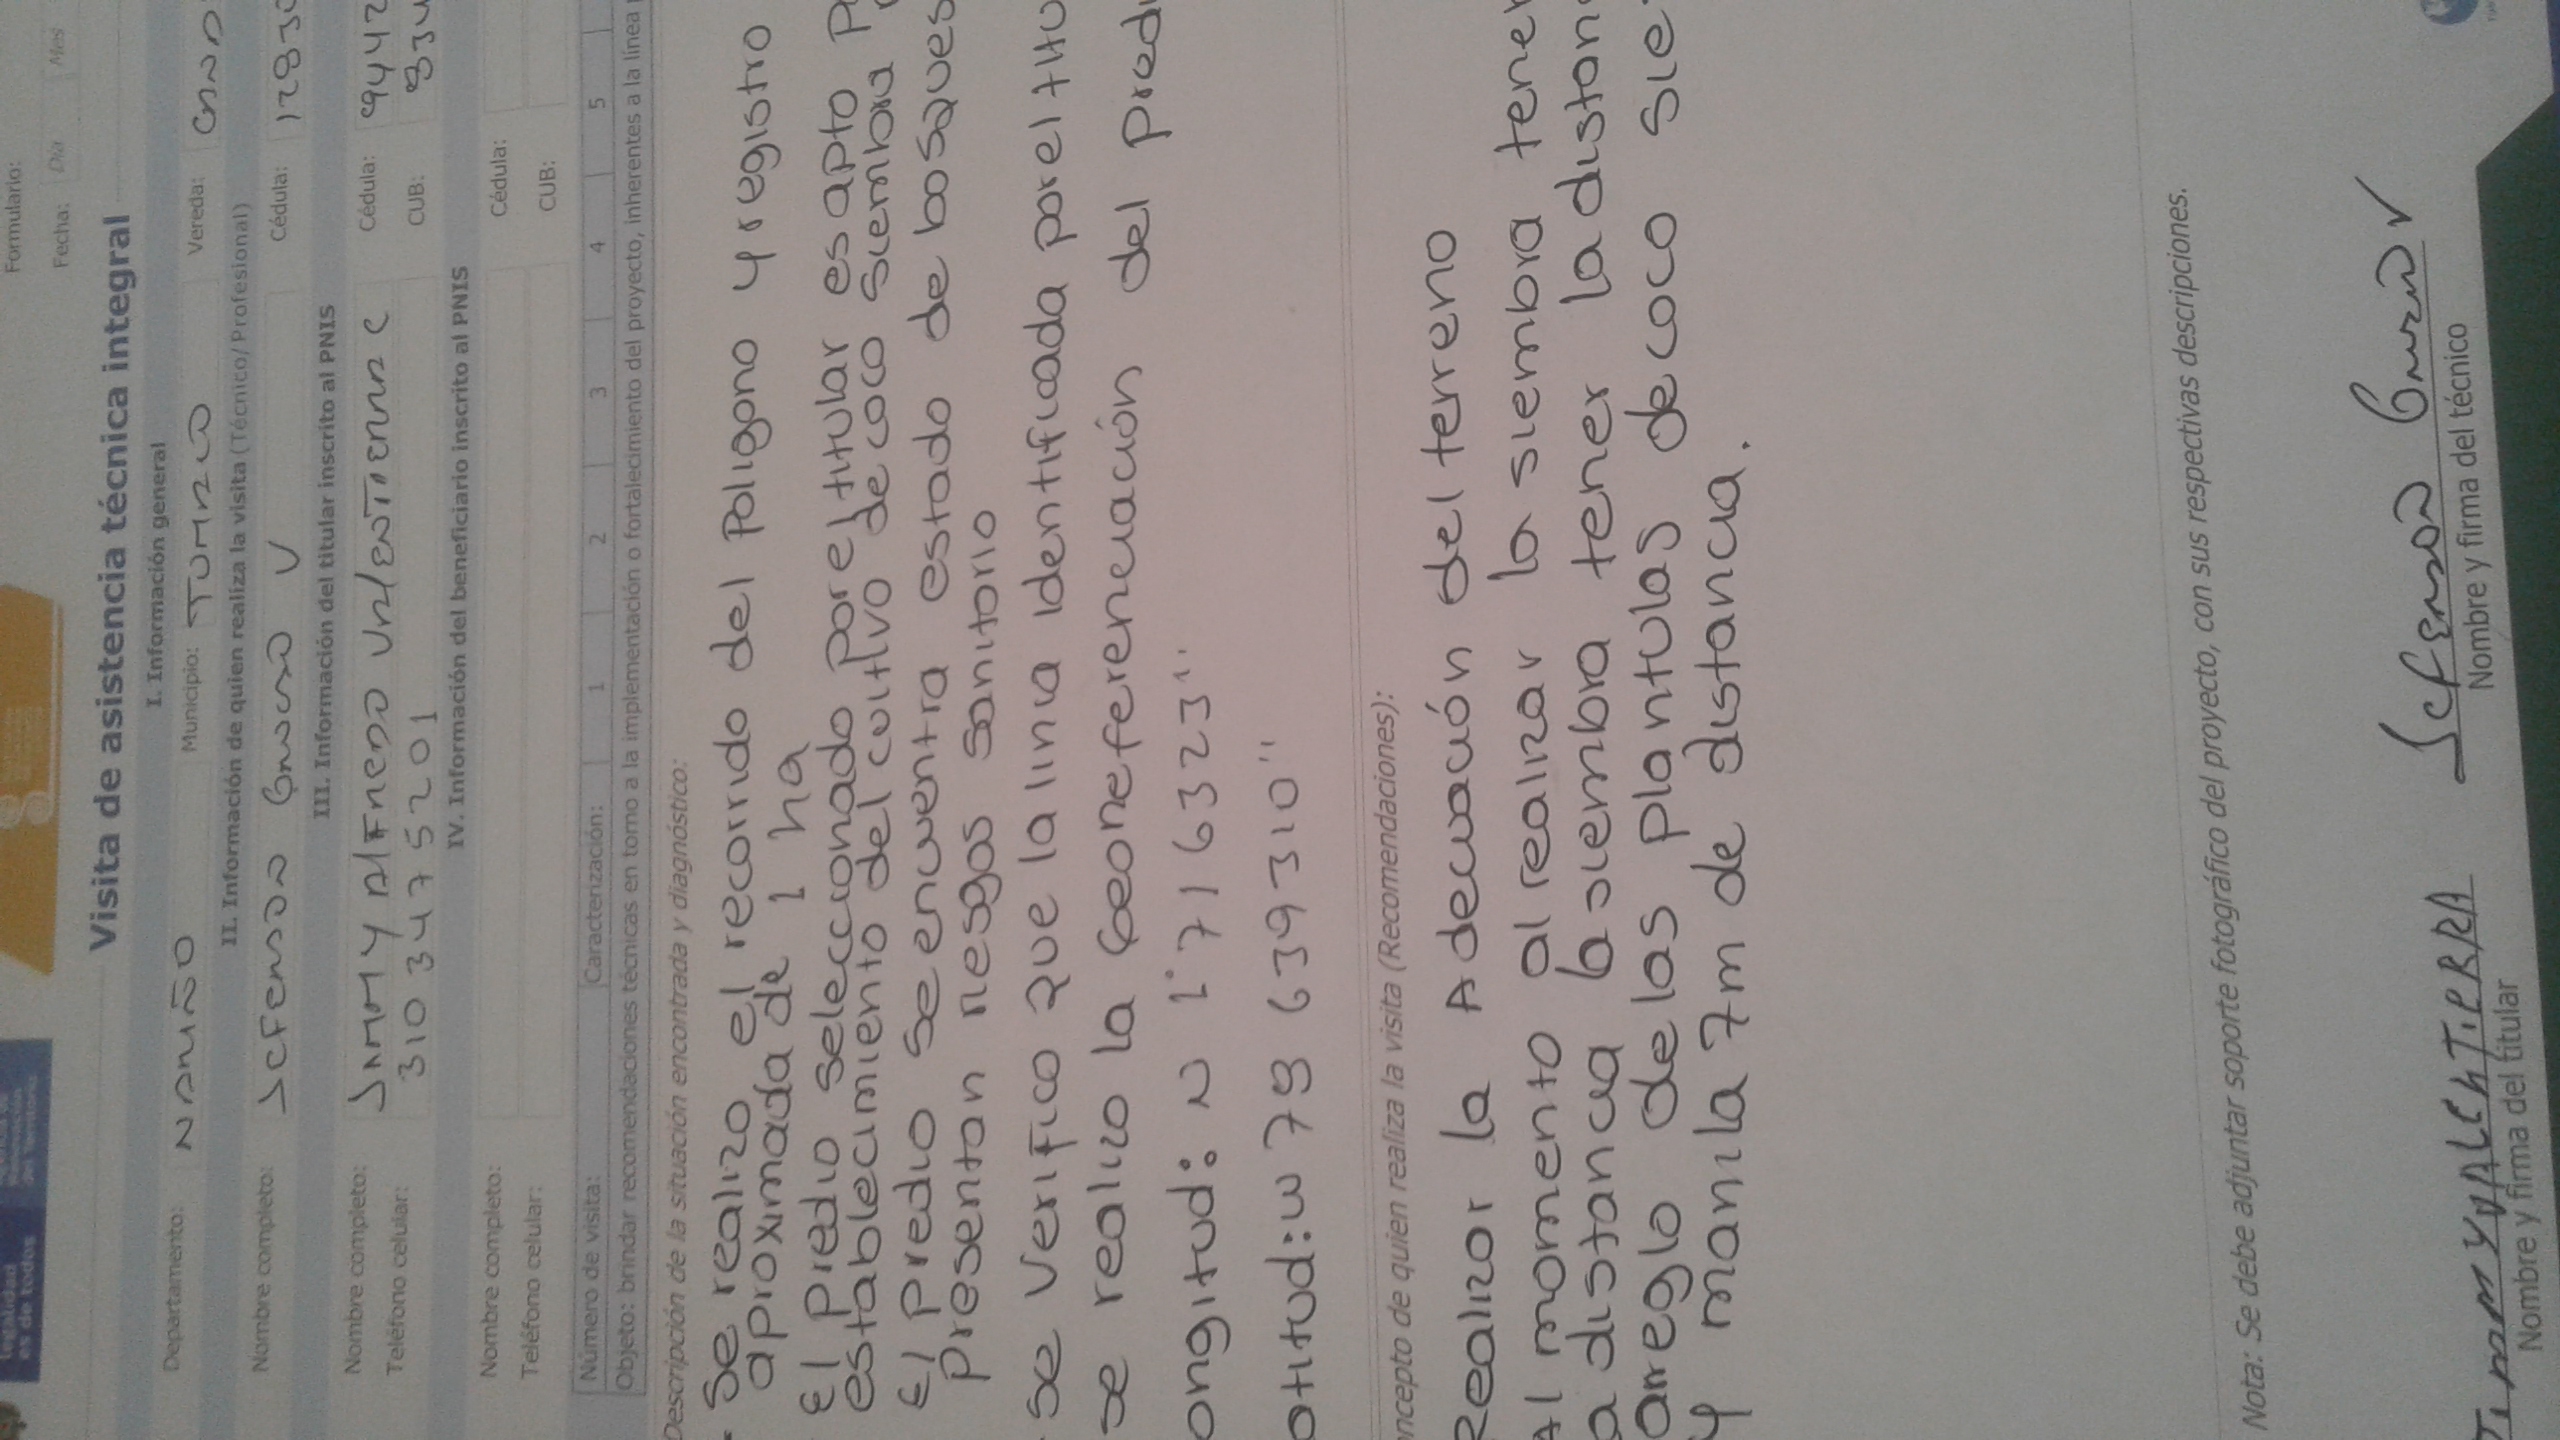 legalidad
es de todos
Formulario:
Fecha: Día Mes
Visita de asistencia técnica integral
I. Información general
Departamento: NARIÑO Municipio: TUMACO Vereda:
II. Información de quien realiza la visita (Técnico/Profesional)
Nombre completo: Cédula: 1283
III. Información del titular inscrito al PNIS
Nombre completo: JAMMY ALFREDO VALENTIERRA C Cédula: 9442
Teléfono celular: 310 347 5201 CUB: 834
IV. Información del beneficiario inscrito al PNIS
Nombre completo: Cédula:
Teléfono celular: CUB:
Número de visita: Caracterización: 1 2 3 4 5
Objeto: brindar recomendaciones técnicas en torno a la implementación o fortalecimiento del proyecto, inherentes a la línea
Descripción de la situación encontrada y diagnóstico:
- Se realizo el recorrido del Poligono y registro
aproximada de 1 ha
El Predio seleccionado por el titular es apto
establecimiento del cultivo de coco siembra
El Predio se encuentra estado de bosques
presentan riesgos sanitorio
- se verifico que la linia identificada por el titu
se realizo la Georeferenciación del predi
ongitud: N 1°71 6323"
atitud: W 78 639310"
ncepto de quien realiza la visita (Recomendaciones):
Realizar la Adecuación del terreno
Al momento al realizar la siembra tener
a distancia la siembra tener la distan
arreglo de las plantulas de coco sie
y manila 7m de distancia.
Nota: Se debe adjuntar soporte fotográfico del proyecto, con sus respectivas descripciones.
Nombre y firma del titular Nombre y firma del técnico